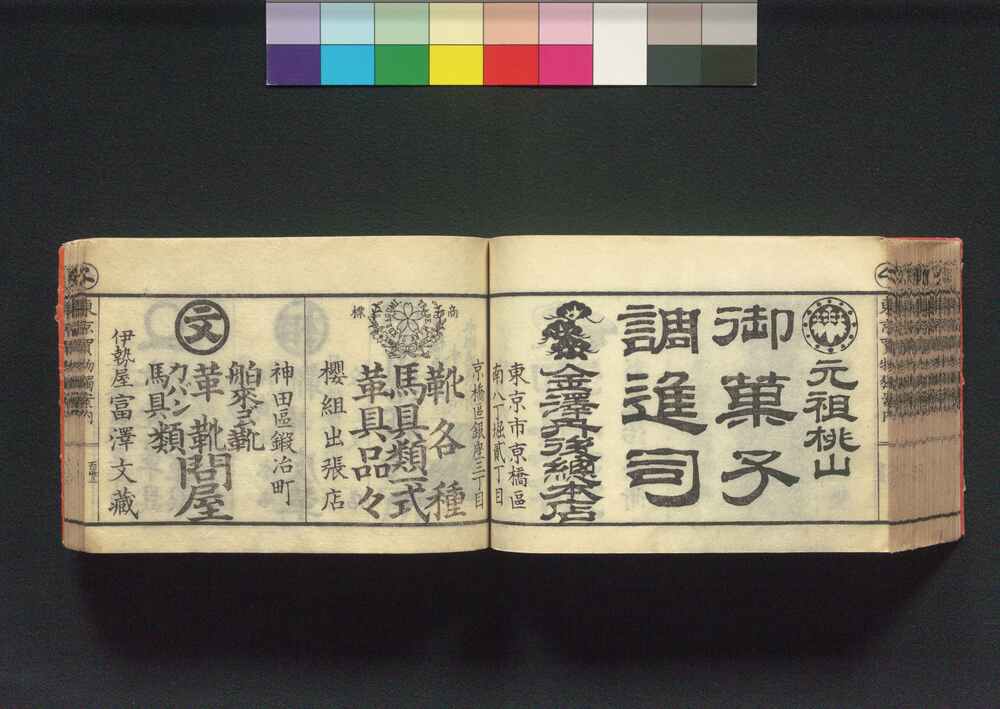 東京買物獨案内
元祖桃山
御菓子
調進司
金澤丹後總本店
東京市京橋區
南八丁堀貳丁目
京橋區銀座三丁目
商標
靴各種
馬具類一式
革具品々
櫻組出張店
神田區鍛冶町
舶来ゴム靴
文
革靴問屋
カバン
馬具類
伊勢屋富澤文藏
東京買物獨案内